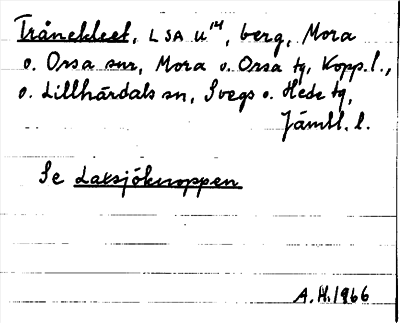 Trånekleet, LSA U¹⁴, berg, Mora
o. Orsa snr, Mora o. Orsa tg, Kopp. l.,
o. Lillhärdals sn, Svegs o. Hede tg,
Jämtl. l.
Se Laxsjöknoppen
A.H. 1966